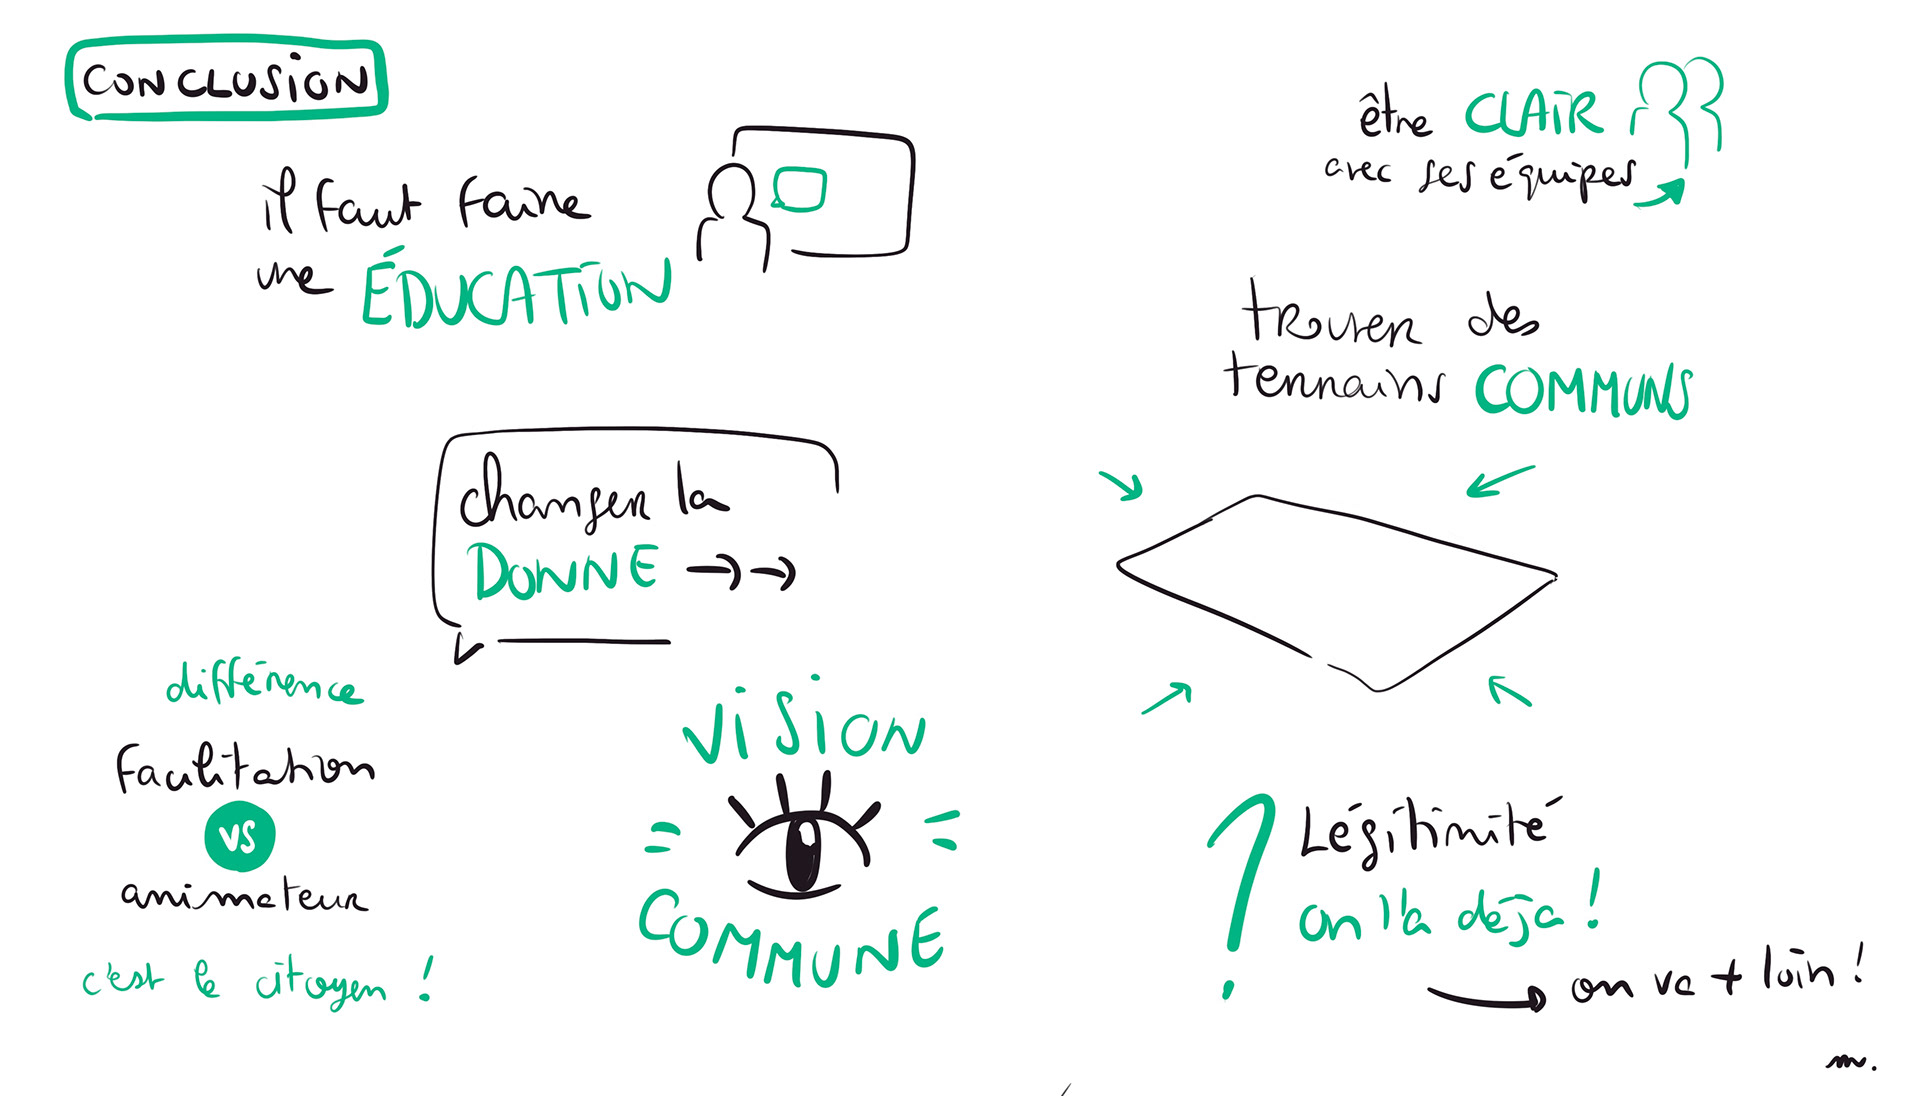 CONCLUSION
il faut faire
une ÉDUCATION
être CLAIR
avec ses équipes
trouver des
terrains COMMUNS
changer la
DONNE
différence
facilitation
vs
animateur
c'est le citoyen !
VISION
COMMUNE
? Légitimité
on l'a déjà !
on va + loin !